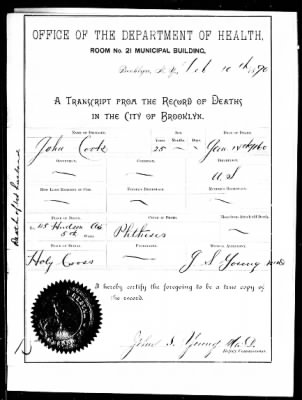 OFFICE OF THE DEPARTMENT OF HEALTH,
ROOM No. 21 MUNICIPAL BUILDING,
Brooklyn, N. Y., Feb 10th 1890
A TRANSCRIPT FROM THE RECORD OF DEATHS
IN THE CITY OF BROOKLYN.
NAME OF DECEASED. AGE. DATE OF DEATH.
John Cook 25 Years Months. Days. Jan
OCCUPATION. CONDITION. BIRTHPLACE.
U S
HOW LONG RESIDENT OF CITY. FATHER'S BIRTHPLACE. MOTHER'S BIRTHPLACE.
PLACE OF DEATH. CAUSE OF DEATH.
Hudson Av
5th WARD Phthisis
PLACE OF BURIAL. UNDERTAKER. MEDICAL ATTENDANT.
Holy Cross J S Young M.D.
I hereby certify the foregoing to be a true copy of
the record.
John S. Young M.D.
DEPUTY COMMISSIONER.
Death of 1st husband